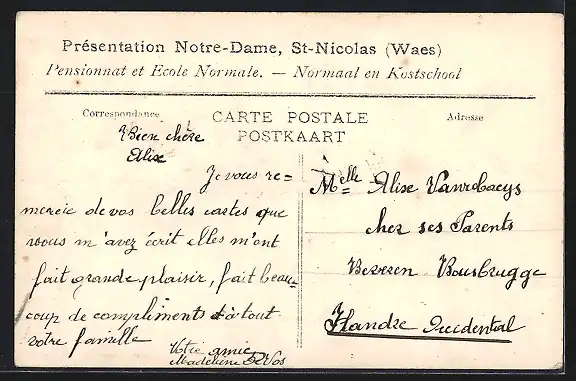 Présentation Notre-Dame, St-Nicolas (Waes)
Pensionnat et Ecole Normale. — Normaal en Kostschool
Correspondance
CARTE POSTALE
POSTKAART
Adresse
Bien chère
Alix
Je vous re=
mercie de vos belles cartes que
vous m'avez écrit elles m'ont
fait grande plaisir, fait beau=
coup de compliments à tout
votre famille
Votre amie
Madeleine De Vos
Melle Alise Vanrobaeys
cher ses Parents
Beveren Bousbrugge
Flandre Occidental